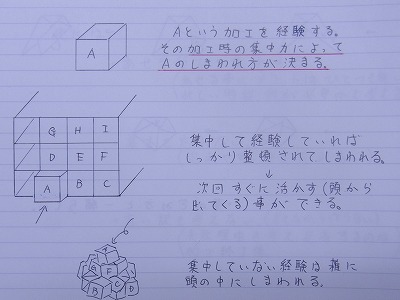 A
Aという加工を経験する。
その加工時の集中力によって
Aのしまわれ方が決まる。
G H I
D E F
A B C
集中して経験していれば
しっかり整頓されてしまわれる。
↓
次回すぐに活かす(頭から
出てくる)事ができる。
集中していない経験は雑に
頭の中にしまわれる。